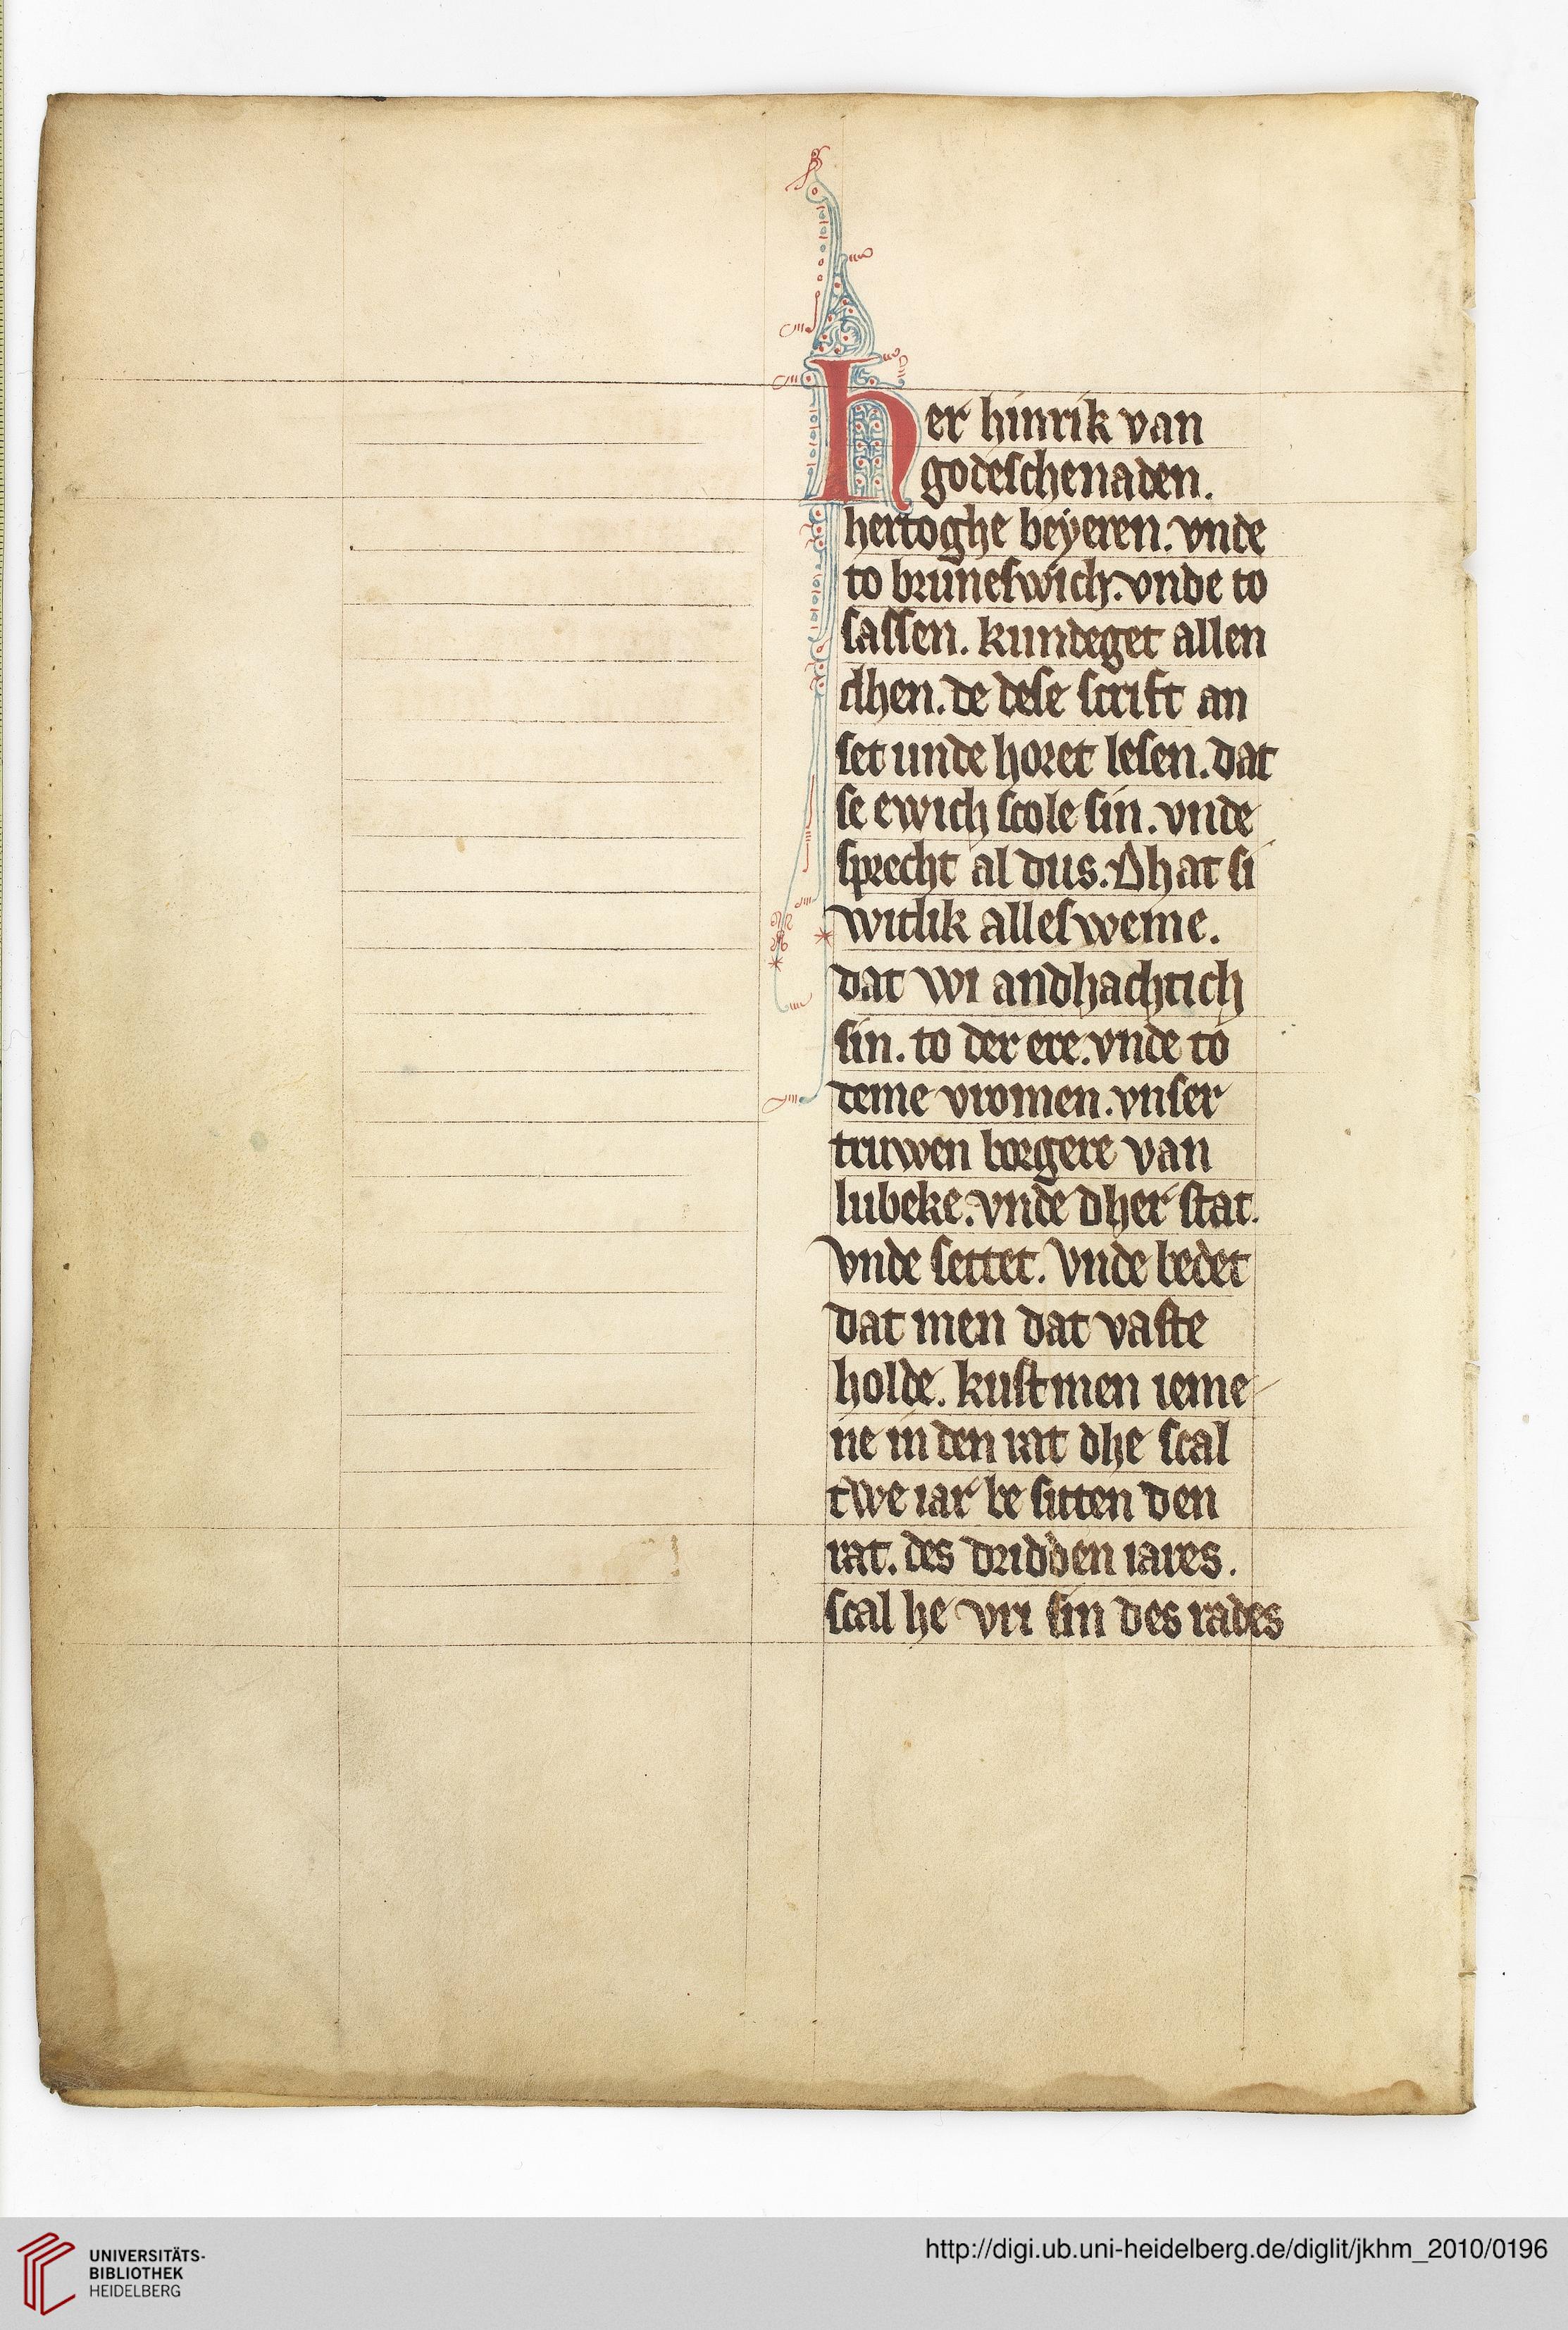 her hinrik van
godeschenaden.
hertoghe beyeren. vnde
to bruneswich. vnde to
sassen. kundeget allen
dhen. de dese scrift an
set unde horet lesen. dat
se ewich scole sin. vnde
sprecht al dus. Dhat si
witlik allesweme.
dat wi andhachtich
sin. to der ere. vnde to
deme vromen. vnser
truwen borgere van
lubeke. vnde dher stat.
vnde settet. vnde bedet
dat men dat vaste
holde. kustmen ieme
ne in den rat dhe scal
twe iar be sitten den
rat. des dridden iares.
scal he vri sin des rades
UNIVERSITÄTS-
BIBLIOTHEK
HEIDELBERG
http://digi.ub.uni-heidelberg.de/diglit/jkhm_2010/0196